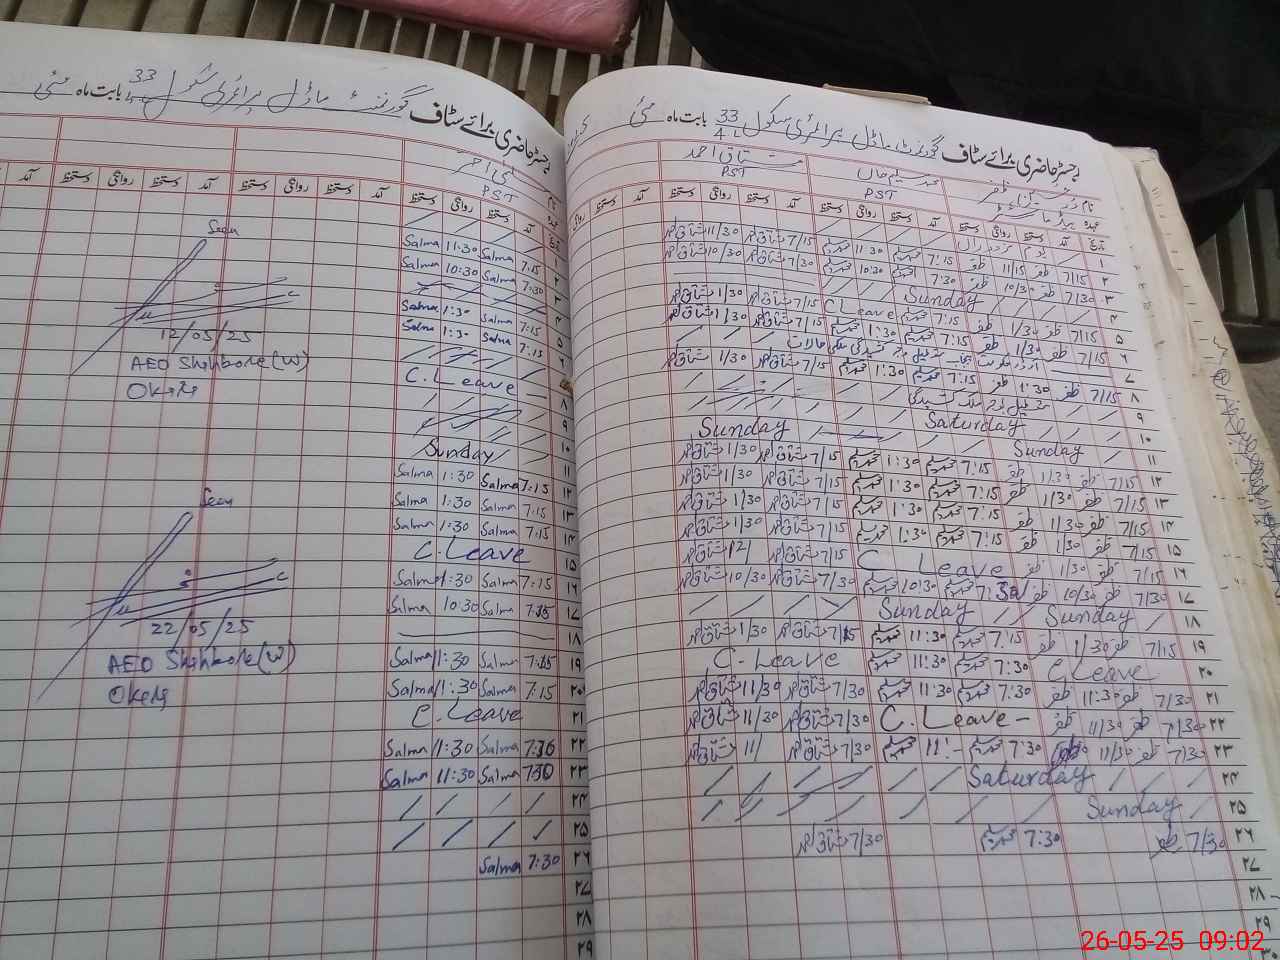 رجسٹر حاضری برائے سٹاف گورنمنٹ ماڈل پرائمری سکول 33 بابت ماہ مئی
PST
آمد دستخط روانگی دستخط آمد دستخط روانگی دستخط
۱
۲ 7:15 Salma 11:30 Salma
۳ 7:30 Salma 10:30 Salma
۴
۵ 7:15 Salma 1:30 Salma
۶ 7:15 Salma 1:30 Salma
۷
۸ C. Leave
۹
۱۰
۱۱ Sunday
۱۲ 7:15 Salma 1:30 Salma
۱۳ 7:15 Salma 1:30 Salma
۱۴ 7:15 Salma 1:30 Salma
۱۵ C. Leave
۱۶ 7:15 Salma 1:30 Salma
۱۷ 7:15 Salma 10:30 Salma
۱۸
۱۹ 7:15 Salma 11:30 Salma
۲۰ 7:15 Salma 11:30 Salma
۲۱ C. Leave
۲۲ 7:30 Salma 11:30 Salma
۲۳ 7:30 Salma 11:30 Salma
۲۴
۲۵
۲۶ 7:30 Salma
۲۷
۲۸
۲۹
Seen
12/05/25
AEO Shahbore (W)
Okara
Seen
22/05/25
AEO Shahbore (W)
Okara
رجسٹر حاضری برائے سٹاف گورنمنٹ ماڈل پرائمری سکول 33/4L بابت ماہ مئی
مشتاق احمد
PST
محمد سلیم خاں
PST
نام
عہدہ ہیڈ ماسٹر
تاریخ آمد دستخط روانگی دستخط آمد دستخط روانگی دستخط آمد دستخط روانگی دستخط
۱
۲ 7/15 ظفر 11/15 ظفر 7:15 محمد سلیم 11:30 محمد سلیم 7/15 مشتاق احمد 11/30 مشتاق احمد
۳ 7/30 ظفر 10/30 ظفر 7:30 محمد سلیم 10:30 محمد سلیم 7/30 مشتاق احمد 10/30 مشتاق احمد
۴ Sunday
۵ 7/15 ظفر 1/30 ظفر 7:15 C Leave 7/15 مشتاق احمد 1/30 مشتاق احمد
۶ 7/15 ظفر 1/30 ظفر 7:15 محمد سلیم 1:30 محمد سلیم 7/15 مشتاق احمد 1/30 مشتاق احمد
۷
۸ 7/15 ظفر 1:30 ظفر 7:15 محمد سلیم 1:30 محمد سلیم 7/15 مشتاق احمد 1/30 مشتاق احمد
۹
۱۰ Saturday
۱۱ Sunday Sunday
۱۲ 7/15 ظفر 1/30 ظفر 7:15 محمد سلیم 1:30 محمد سلیم 7/15 مشتاق احمد 1/30 مشتاق احمد
۱۳ 7/15 ظفر 1/30 ظفر 7:15 محمد سلیم 1:30 محمد سلیم 7/15 مشتاق احمد 1/30 مشتاق احمد
۱۴ 7/15 ظفر 1/30 ظفر 7:15 محمد سلیم 1:30 محمد سلیم 7/15 مشتاق احمد 1/30 مشتاق احمد
۱۵ 7/15 ظفر 1/30 ظفر 7:15 محمد سلیم 1:30 محمد سلیم 7/15 مشتاق احمد 1/30 مشتاق احمد
۱۶ 7/15 ظفر 1/30 ظفر C Leave 7/15 مشتاق احمد 12/ مشتاق احمد
۱۷ 7/30 ظفر 10/30 ظفر محمد سلیم 10:30 محمد سلیم 7/30 مشتاق احمد 10/30 مشتاق احمد
۱۸ Sunday Sunday
۱۹ 7/15 ظفر 1/30 ظفر 7:15 محمد سلیم 11:30 محمد سلیم 7/15 مشتاق احمد 1/30 مشتاق احمد
۲۰ C Leave 7:30 محمد سلیم 11:30 محمد سلیم C- Leave
۲۱ 7/30 ظفر 11:30 ظفر 7:30 محمد سلیم 11:30 محمد سلیم 7/30 مشتاق احمد 11/30 مشتاق احمد
۲۲ 7/30 ظفر 11/30 ظفر C. Leave - 7/30 مشتاق احمد 11/30 مشتاق احمد
۲۳ 7/30 ظفر 11/30 7:30 محمد سلیم 11:- محمد سلیم 7/30 مشتاق احمد 11/ مشتاق احمد
۲۴ Saturday
۲۵ Sunday
۲۶ 7/30 ظفر 7:30 محمد سلیم 7/30 مشتاق احمد
۲۷
۲۸
۲۹
۳۰
26-05-25 09:02